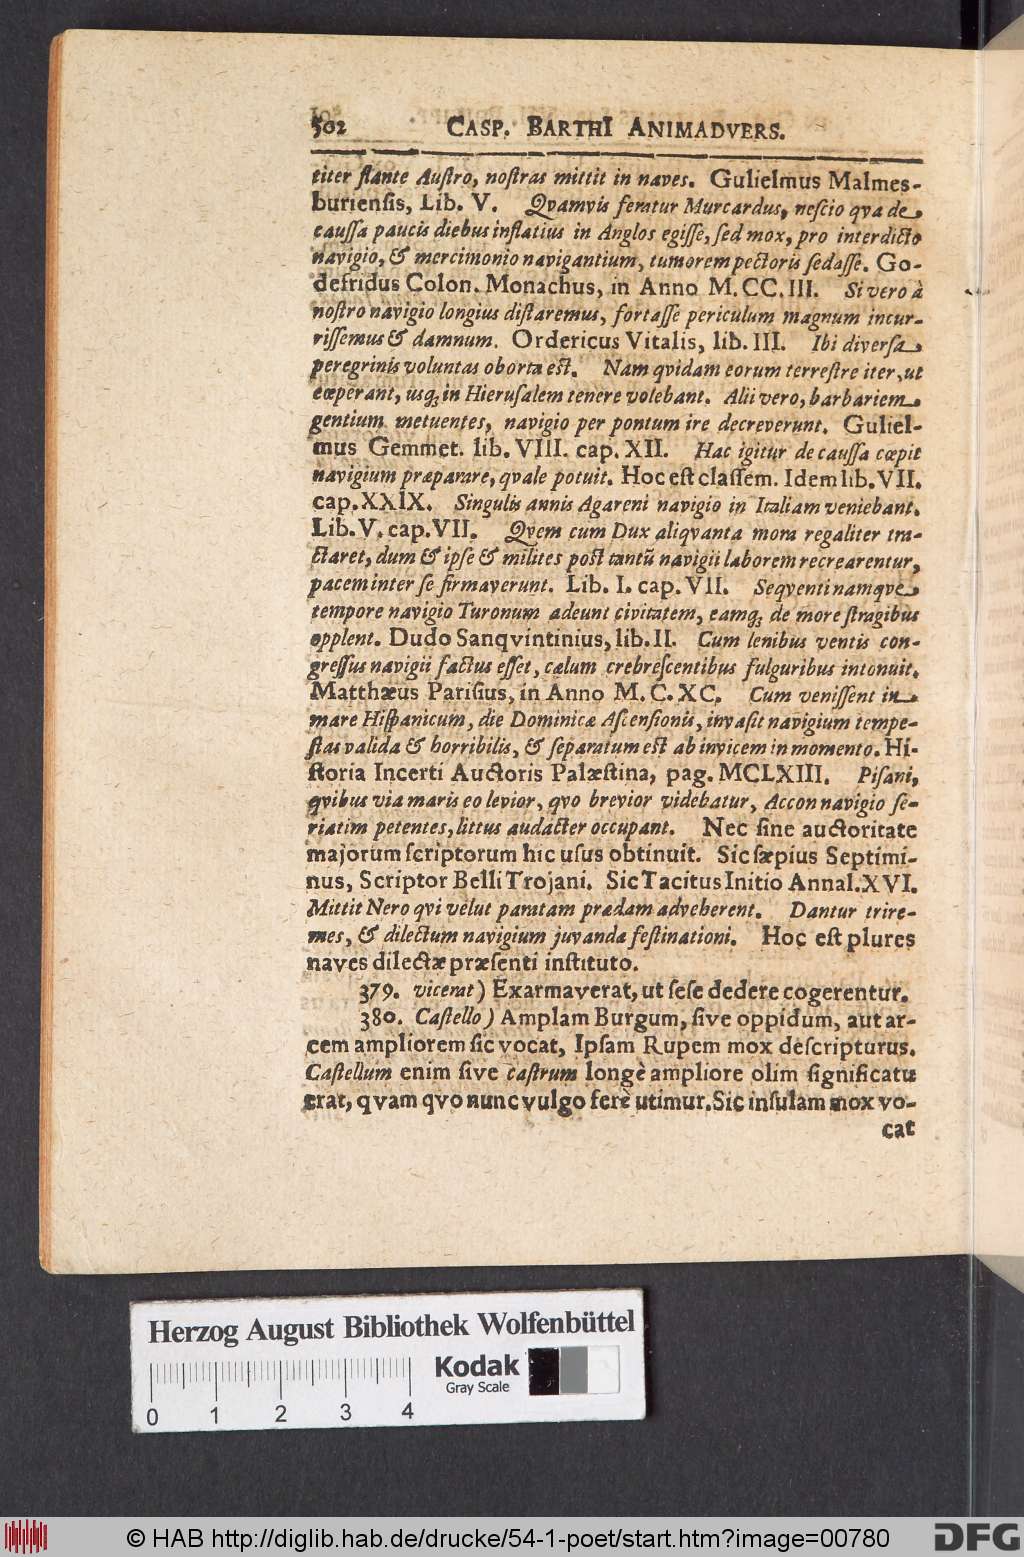 502 CASP. BARTHI ANIMADVERS.
titer flante Austro, nostras mittit in naves. Gulielmus Malmes-
buriensis, Lib. V. Qvamvis feratur Murcardus, nescio qva de
caussa paucis diebus inflatius in Anglos egisse, sed mox, pro interdicto
navigio, & mercimonio navigantium, tumorem pectoris sedasse. Go-
defridus Colon. Monachus, in Anno M. CC. III. Si vero à
nostro navigio longius distaremus, fortasse periculum magnum incur-
rissemus & damnum. Ordericus Vitalis, lib. III. Ibi diversa
peregrinis voluntas oborta est. Nam qvidam eorum terrestre iter, ut
cœperant, usq; in Hierusalem tenere volebant. Alii vero, barbariem
gentium metuentes, navigio per pontum ire decreverunt. Guliel-
mus Gemmet. lib. VIII. cap. XII. Hac igitur de caussa cœpit
navigium præparare, qvale potuit. Hoc est classem. Idem lib. VII.
cap. XXIX. Singulis annis Agareni navigio in Italiam veniebant.
Lib. V. cap. VII. Qvem cum Dux aliqvanta mora regaliter tra-
ctaret, dum & ipse & milites post tantũ navigii laborem recrearentur,
pacem inter se firmaverunt. Lib. I. cap. VII. Seqventi namqve
tempore navigio Turonum adeunt civitatem, eamq; de more stragibus
opplent. Dudo Sanqvintinius, lib. II. Cum lenibus ventis con-
gressus navigii factus esset, cælum crebrescentibus fulguribus intonuit.
Matthæus Parisius, in Anno M. C. XC. Cum venissent in
mare Hispanicum, die Dominicæ Ascensionis, invasit navigium tempe-
stas valida & horribilis, & separatum est ab invicem in momento. Hi-
storia Incerti Auctoris Palæstina, pag. MCLXIII. Pisani,
qvibus via maris eo levior, qvo brevior videbatur, Accon navigio se-
riatim petentes, littus audacter occupant. Nec sine auctoritate
majorum scriptorum hic usus obtinuit. Sic sæpius Septimi-
nus, Scriptor Belli Trojani. Sic Tacitus Initio Annal. XVI.
Mittit Nero qvi velut paratam prædam adveherent. Dantur trire-
mes, & dilectum navigium juvanda festinationi. Hoc est plures
naves dilectæ præsenti instituto.
379. vicerat) Exarmaverat, ut sese dedere cogerentur.
380. Castello) Amplam Burgum, sive oppidum, aut ar-
cem ampliorem sic vocat, Ipsam Rupem mox descripturus.
Castellum enim sive castrum longè ampliore olim significatu
erat, qvam qvo nunc vulgo ferè utimur. Sic insulam mox vo-
cat
Herzog August Bibliothek Wolfenbüttel
Kodak
Gray Scale
0 1 2 3 4
© HAB http://diglib.hab.de/drucke/54-1-poet/start.htm?image=00780
DFG